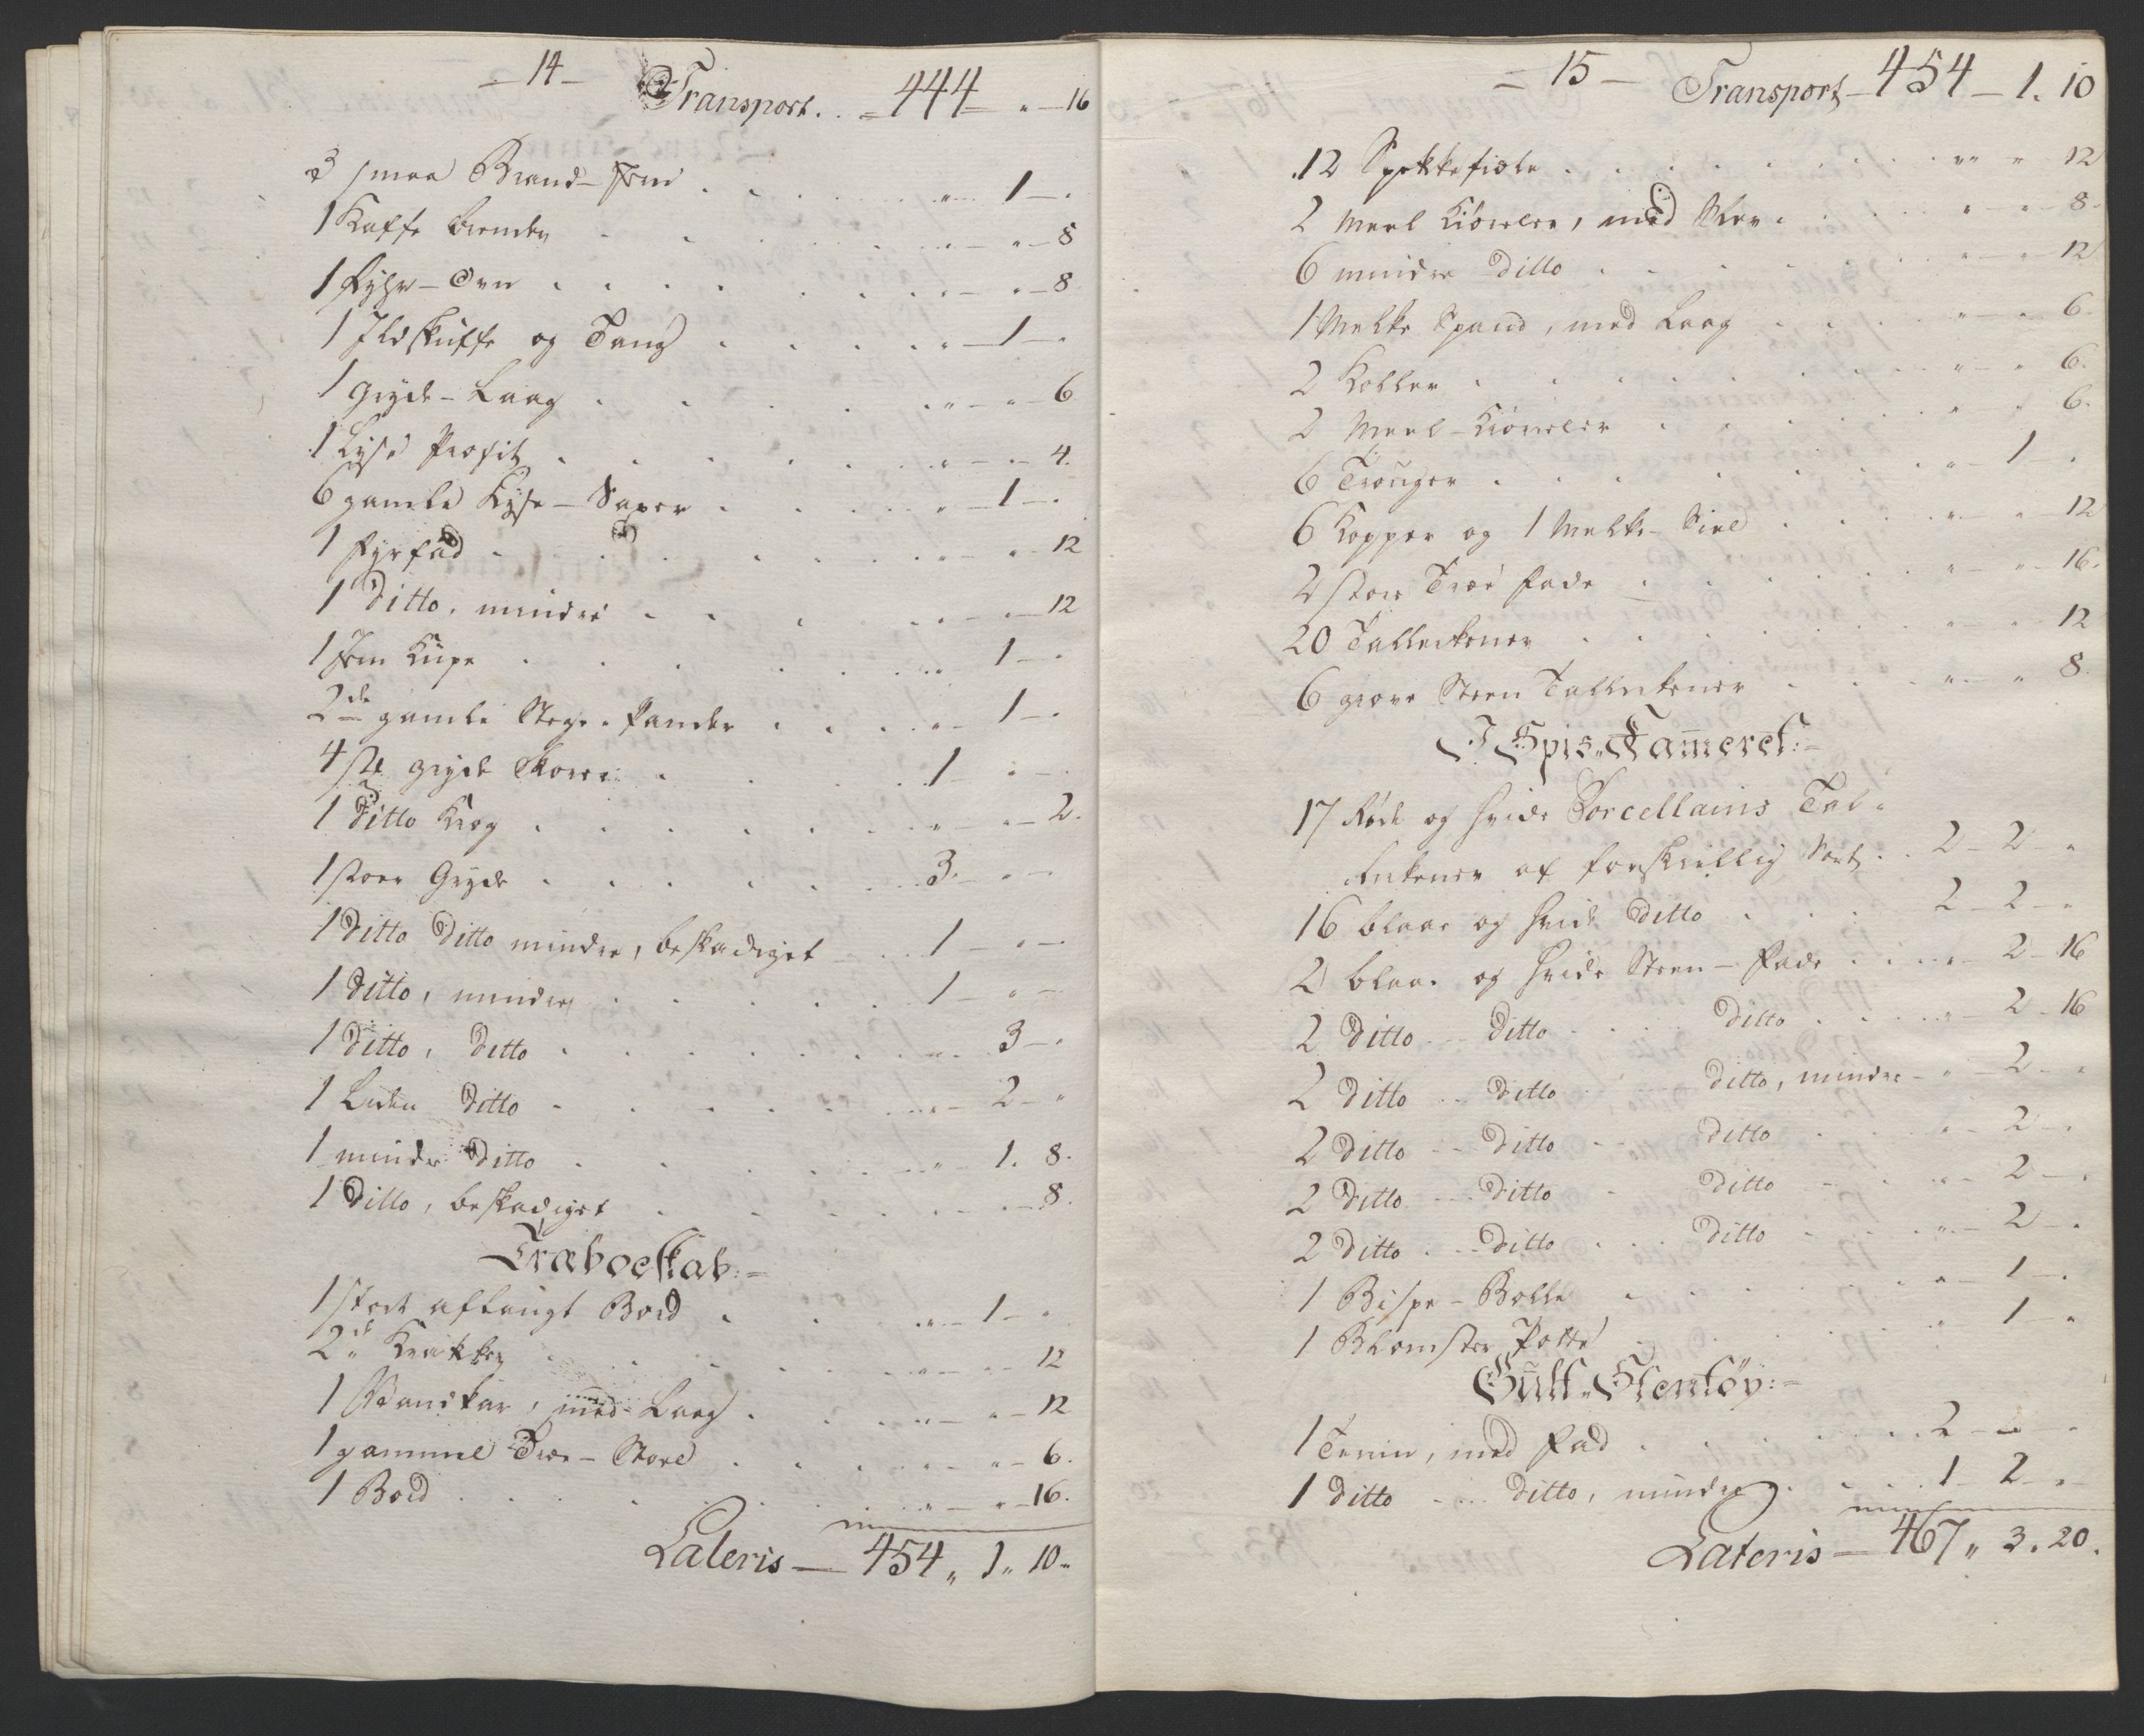 — 14 —
Transport. . — 444 — " — 16
3 smaa Brand-Jern . . . . . " — 1 — "
1 Kaffe brender . . . . . " — " — 8
1 Fyhr-Ovn . . . . . " — " — 8
1 Ildskuffe og Tang . . . . " — 1 — "
1 Gryde-Laag . . . . . " — " — 6
1 Lyse Profit . . . . . " — " — 4.
6 gamle Lyse-Saxer . . . . " — 1 — "
1 Fyrfad . . . . . " — " — 12
1 Ditto, mindre . . . . " — " — 12
1 Jern Kupe . . . . . " — 1 — "
2de gamle Stege-Pander . . . . " — 1 — "
4 st Gryde . . . . 1 — " — "
1 Ditto Krog . . . . . " — " — 2.
1 stoer Gryde . . . . . 3 — " — "
1 Ditto Ditto mindre, beskadiget . . 1 — " — "
1 Ditto, mindre . . . . . 1 — " — "
1 Ditto, Ditto . . . . . " — 3 — "
1 Liden Ditto . . . . . " — 2 — "
1 mindre Ditto . . . . . " — 1. 8.
1 Ditto, beskadiget . . . . . " — " — 8.
Træboeskab:=
1 stort aflangt Bord . . . . " — 1 — "
2de Krakker . . . . . " — " — 12
1 Vandkar, med Laag . . . . " — " — 12
1 gammel Træ-Stoel . . . . " — " — 6.
1 Bord . . . . . " — " — 16.
Lateris — 454 " 1 " 10 "
— 15 —
Transport — 454 — 1. 10
12 Spekkefiele . . . . . " " 12
2 Meel Kiøreler, med . . . " — " — 8.
6 mindre Ditto . . . . . " — " — 12
1 Melke Spand, med Laag . . . . " — " 6.
2 Koller . . . . . " — " 6.
2 Meel-Kiøreler . . . . . " " 6.
6 Trouger . . . . . " — 1 — "
6 Kopper og 1 Melke-Siel . . . . " — " 12
2 store Træe Fade . . . . . " — " — 16.
20 Tallerkener . . . . . " — " — 12
6 grove Steen Tallerkener . . . . " — " 8.
I Spis-Kameret:=
17 Røde og hvide Porcellains Tal-
lerkener af forskiellig Sort . . 2 — 2 — "
16 blaae og hvide Ditto . . . 2 — 2 — "
2 blaae og hvide Steen-Fade . . . " — 2 — 16
2 Ditto . . . Ditto . . . Ditto . . . " — 2 — 16
2 Ditto . . Ditto Ditto, mindre — " — 2 — "
2 Ditto . . Ditto . . Ditto . . . " — 2 — "
2 Ditto . . Ditto . Ditto — . . " — 2 — "
2 Ditto . . Ditto . . . Ditto . . . " — 2 — "
1 Bispe-Bolle . . . . . " — 1 — "
1 Blomster Potte . . . . . " 1 — "
Guult Steentøy:=
1 Terrin, med Fad . . . . . 2 — " — "
1 Ditto . . . Ditto, mindre . . . . 1 — 2 — "
Lateris — 467 " 3. 20.